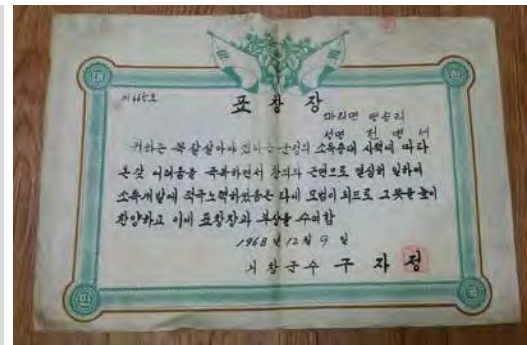 대 한
제665호
표 창 장
마리면 영승리
성명 전 병 서
귀하는 잘살아야 겠다는 군정의 소득증대 시책에 따라
온갖 어려움을 극복하면서 창의와 근면으로 열심히 일하여
소득개발에 적극노력하였음은 타에 모범이 되므로 그 뜻을 높이
찬양하고 이에 표창장과 부상을 수여함
1968년 12월 9일
거창군수 구 자 정
민 국